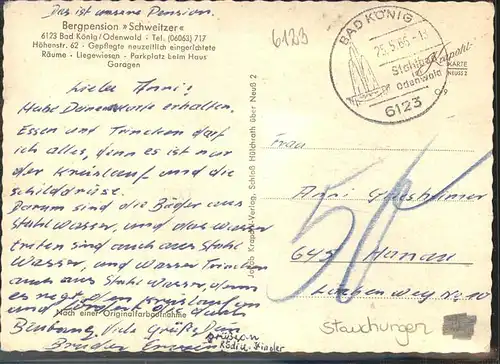 Das ist unsere Pension.
Bergpension »Schweitzer«
6123 Bad König/Odenwald · Tel. (06063) 717
Höhenstr. 62 · Gepflegte neuzeitlich eingerichtete
Räume · Liegewiesen · Parkplatz beim Haus
Garagen
6123
BAD KÖNIG
25.5.66
Stahlbad
Odenwald
6123
Krapohl-
KARTE
NEUSS 2
Liebe Anni!
Habe Deine Karte erhalten.
Essen und Trinken darf
ich alles, denn es ist nur
der Kreislauf und die
schilddrüse.
Darum sind die Bäder aus
Stahlwasser, und das wasser
treten sind auch aus Stahl
wasser, und wasser Trinken
auch aus Stahl wasser, denn
es Kreislauf
und
Nach einer Originalfarbaufnahme
Viele Grüße Dein
Bruder
Krapohl-Verlag, Schloß Hülchrath über Neuß 2
Frau
Anni
50
645 Hanau
weg Nr 10
Stauchungen